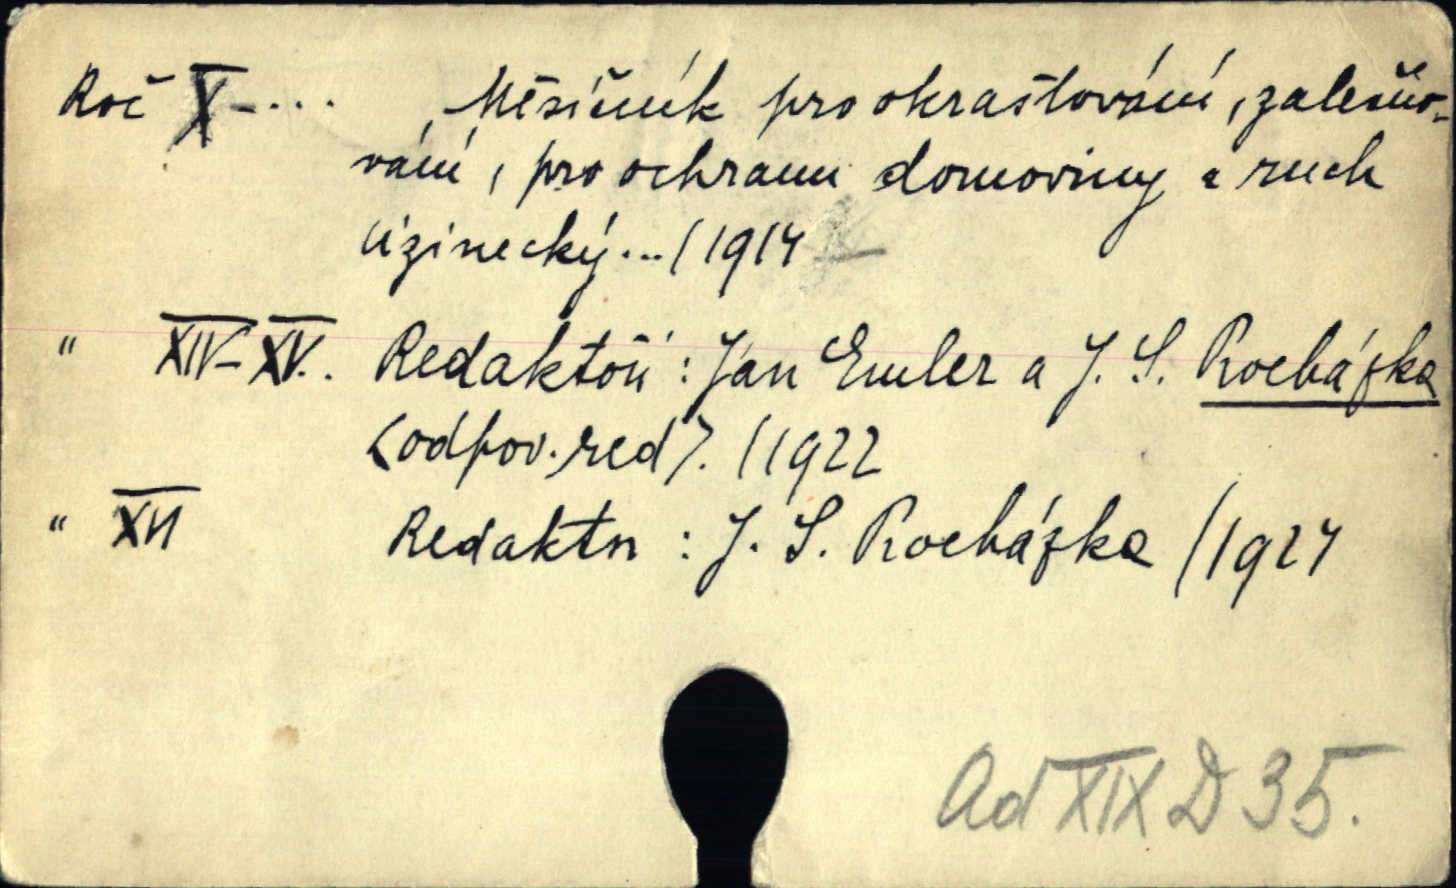 Roč X-... Měsíčník pro okrašlování, zalesňo-
vání, pro ochranu domoviny a ruch
cizinecký... (1914
" XIV-XV. Redaktoři: Jan Emler a J. S. Procházka
(odpov. red). (1922
" XVI Redaktor: J. S. Procházka (1924
Ad XIX D 35.